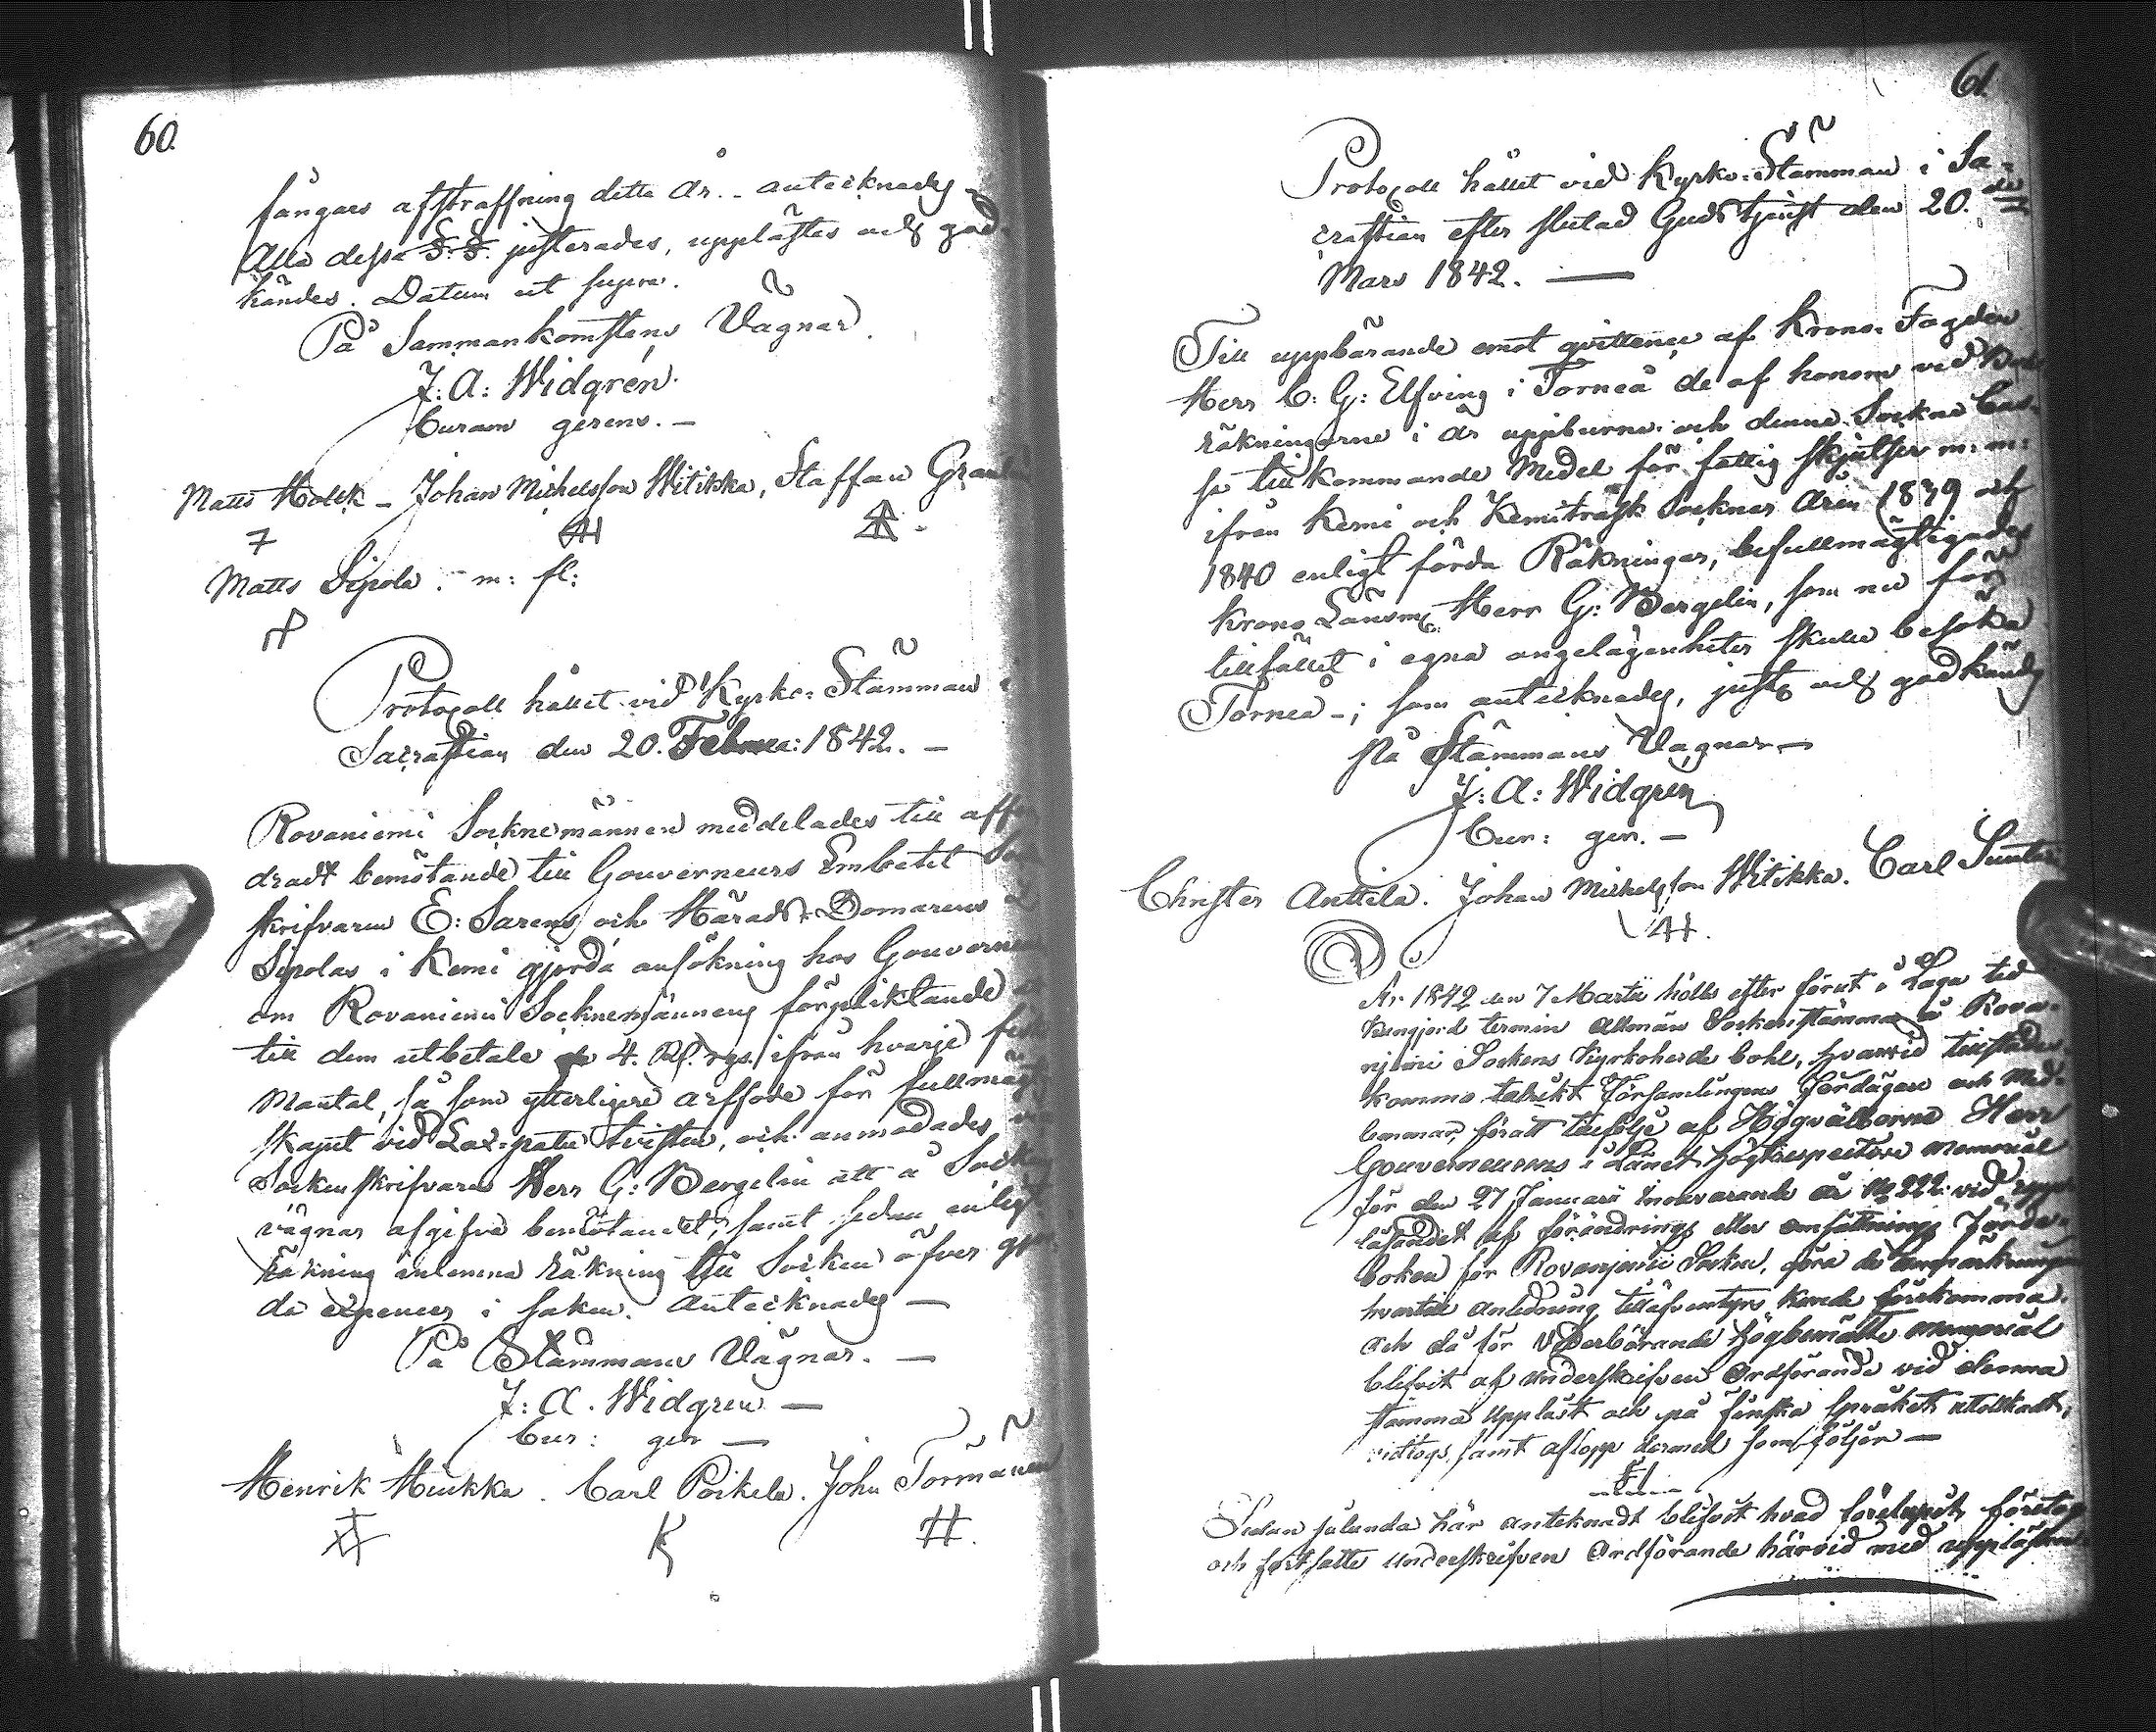 60.
fångars afstraffning detta år. - antecknades -
Alla dessa §. §. justerades, upplästes och god-
kändes. Datum ut supra.
På Sammankomstens Vägnar.
J: A: Widgrén.
Curam gerens. -
Matts Kolck - Johan Michelsson Witikka, Staffan
Matts Sipola. m: fl:
Protocoll hållet vid Kyrko-Stämman i
Sacrastian den 20. Februa: 1842. -
Rovaniemi Socknemännen meddelades till
dradt bemötande till Gouverneurs Embetet
skrifvaren E: Sarens och Härads-Domarens
Sipolas i Kemi gjorda ansökning hos
om Rovaniemi Socknemännens förpliktande
till dem utbetale 4. Rbl. rgs. ifrån hvarje
Mantal, så som ytterligere arfvode för
skapet vid Lax-pata tvisten, och anmodades
Sockenskrifvaren Herr G: Bergelin att å
vägnar afgifva bemötandet, samt sedan
räkning inlemna räkning till Socken öfver
da expencer i saken. Antecknades -
På Stämmans Vägnar. -
J: A. Widgren -
Cur: ger -
Henrik Hiukka. Carl Poikela. John Tormänen
61.
Protocoll hållet vid Kyrko-Stämman i Sa-
crastian efter slutad Gudstjenst den 20.de
Mars 1842. -
Till uppbärande emot qvittence af Krono-Fogden
Herr C: G: Elfving i Torneå de af honom vid
räkningarne i år uppburna och denne Sockne Cas-
sa tillkommande Medel för fattig skjutser m: m:
ifrån Kemi och Kemiträsk Socknar åren 1839 och
1840 enligt förda Räkningar, befullmägtigades
Krono Länsm: Herr G: Bergelin, som nu för
tillfället i egna angelägenheter skulle besöka
Torneå -; som antecknades, just: och godkändes
på Stämmans Vägnar -
J: A: Widgren
Cur: ger. -
Christer Anttila. Johan Michelsson Witikka. Carl
År 1842 den 7 Martii hölls efter förut i Laga tid
kungjord termin Allmän Sockenstämma å Rova-
njemi Sockens Kyrkoherde bohl, hvarvid tillstädes
kommo talrikt Församlingens Jordägare och Med-
lemmar, för att till följe af Högvälborne Herr
Gouverneurens i Länet högtrespective Memorial
för den 27 Januarii innevarande år No 222: vid
läsandet af förändrings eller omsättnings Jorda-
boken för Rovanjemi Socken, göra de anmärkningar
hvartill anledning till äfventyrs kunde förekomma.
Och då för Vederbörande högbemälte Memorial
blifvit af underskrifven Ordförande vid denna
stämma Uppläst och på finska språket uttolkadt,
vidtogs, samt aflopp dermed som följer -
§ 1.
Sedan sålunda här anteknadt blifvit hvad förelupit, företog
och fortsatte Underskrifven Ordförande härvid med